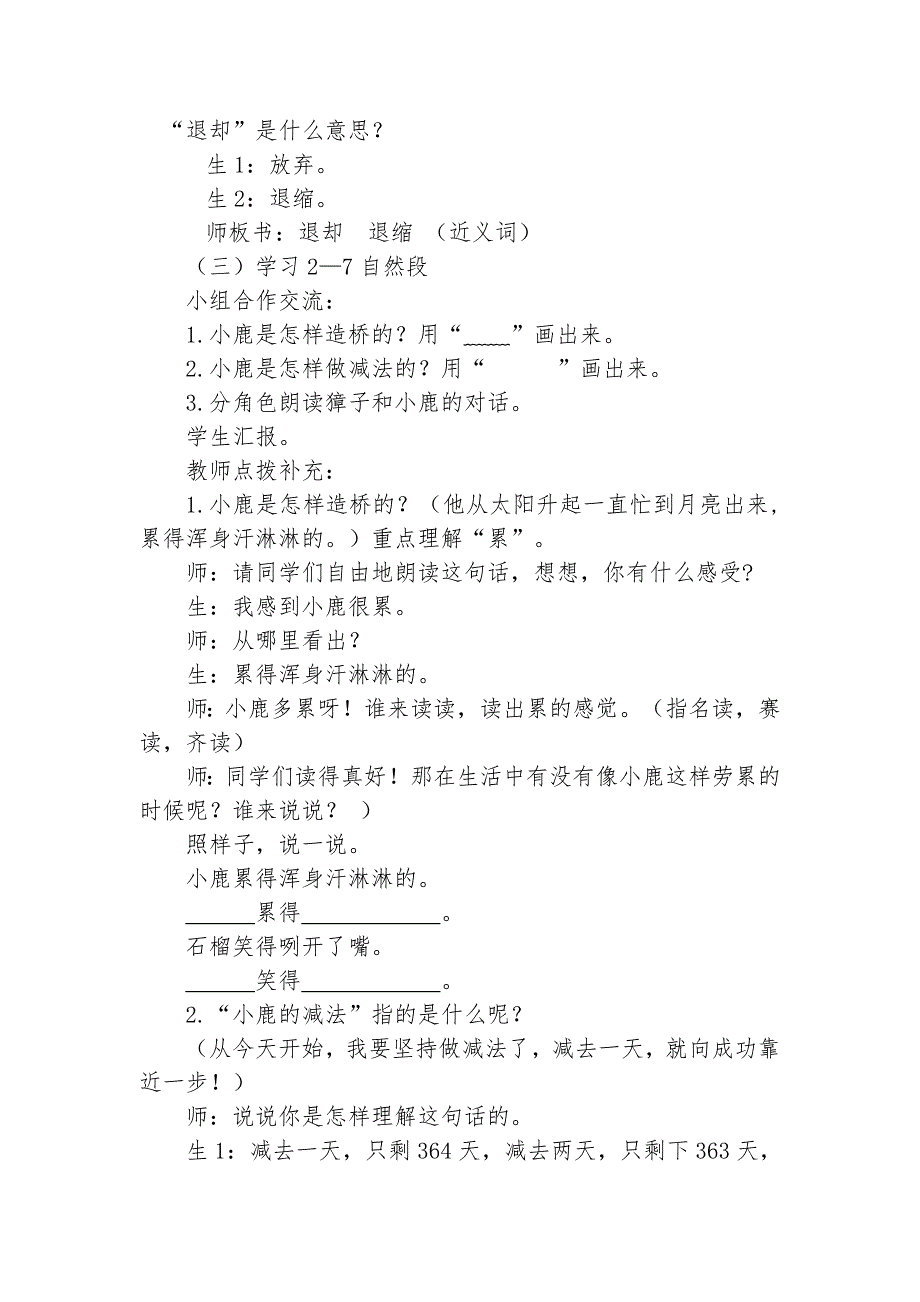 “退却”是什么意思？
生1：放弃。
生2：退缩。
师板书：退却　退缩 （近义词）
（三）学习2—7自然段
小组合作交流：
1.小鹿是怎样造桥的？用“﹏﹏”画出来。
2.小鹿是怎样做减法的？用“　　　”画出来。
3.分角色朗读獐子和小鹿的对话。
学生汇报。
教师点拨补充：
1.小鹿是怎样造桥的？（他从太阳升起一直忙到月亮出来，
累得浑身汗淋淋的。）重点理解“累”。
师：请同学们自由地朗读这句话，想想，你有什么感受？
生：我感到小鹿很累。
师：从哪里看出？
生：累得浑身汗淋淋的。
师：小鹿多累呀！谁来读读，读出累的感觉。（指名读，赛
读，齐读）
师：同学们读得真好！那在生活中有没有像小鹿这样劳累的
时候呢？谁来说说？ ）
照样子，说一说。
小鹿累得浑身汗淋淋的。
______累得____________。
石榴笑得咧开了嘴。
______笑得____________。
2.“小鹿的减法”指的是什么呢？
（从今天开始，我要坚持做减法了，减去一天，就向成功靠
近一步！）
师：说说你是怎样理解这句话的。
生1：减去一天，只剩364天，减去两天，只剩下363天，